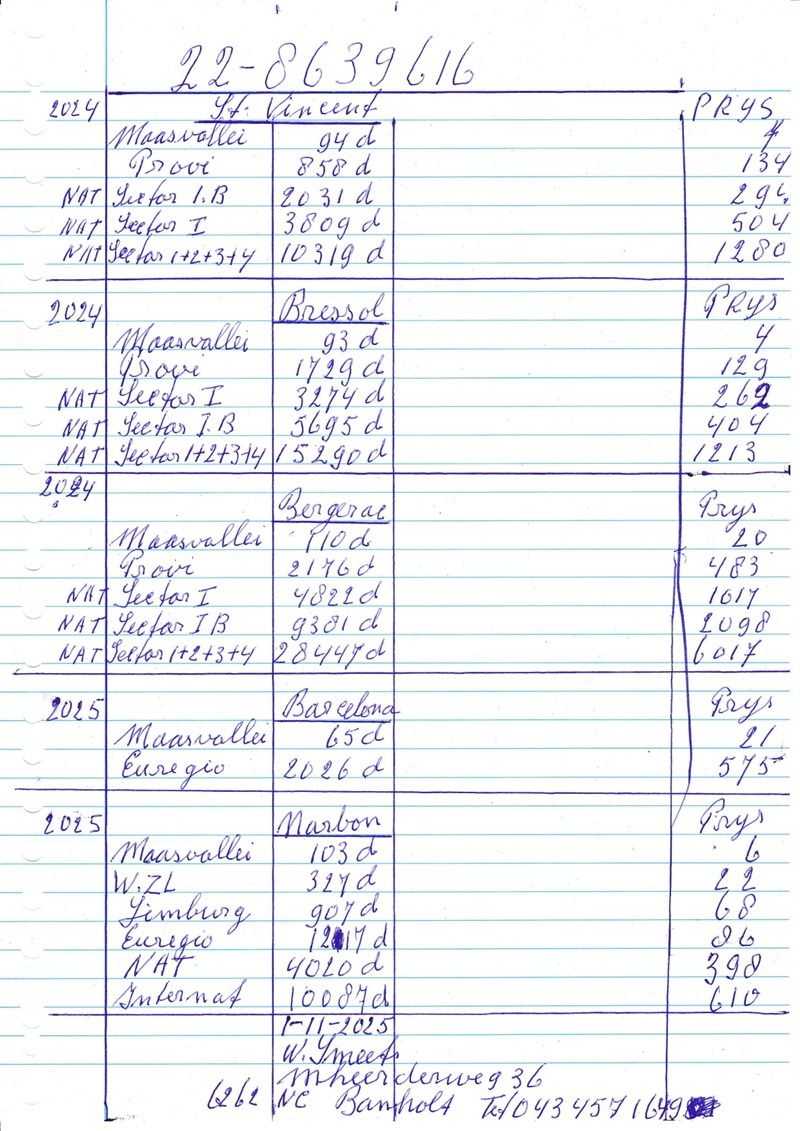 22-8639616
2024 St. Vincent PRYS
Maasvallei 94 d 7
Provi 858 d 134
NAT Sector I.B 2031 d 294
NAT Sector I 3809 d 504
NAT Sector 1+2+3+4 10319 d 1280
2024 Bressol PRYS
Maasvallei 93 d 4
Provi 1729 d 129
NAT Sector I 3274 d 262
NAT Sector I.B 5695 d 404
NAT Sector 1+2+3+4 15290 d 1213
2024 Bergerac Prys
Maasvallei 110 d 20
Provi 2176 d 483
NAT Sector I 4822 d 1017
NAT Sector I B 9381 d 2098
NAT Sector 1+2+3+4 28447 d 6017
2025 Barcelona Prys
Maasvallei 65 d 21
Euregio 2026 d 575
2025 Narbon Prys
Maasvallei 103 d 6
W.ZL 327 d 22
Limburg 907 d 68
Euregio 1217 d 86
NAT 4020 d 398
Internat 10087 d 610
1-11-2025
W. Smeets
Mheerderweg 36
6262 NC Banholt Tel 043457164 9